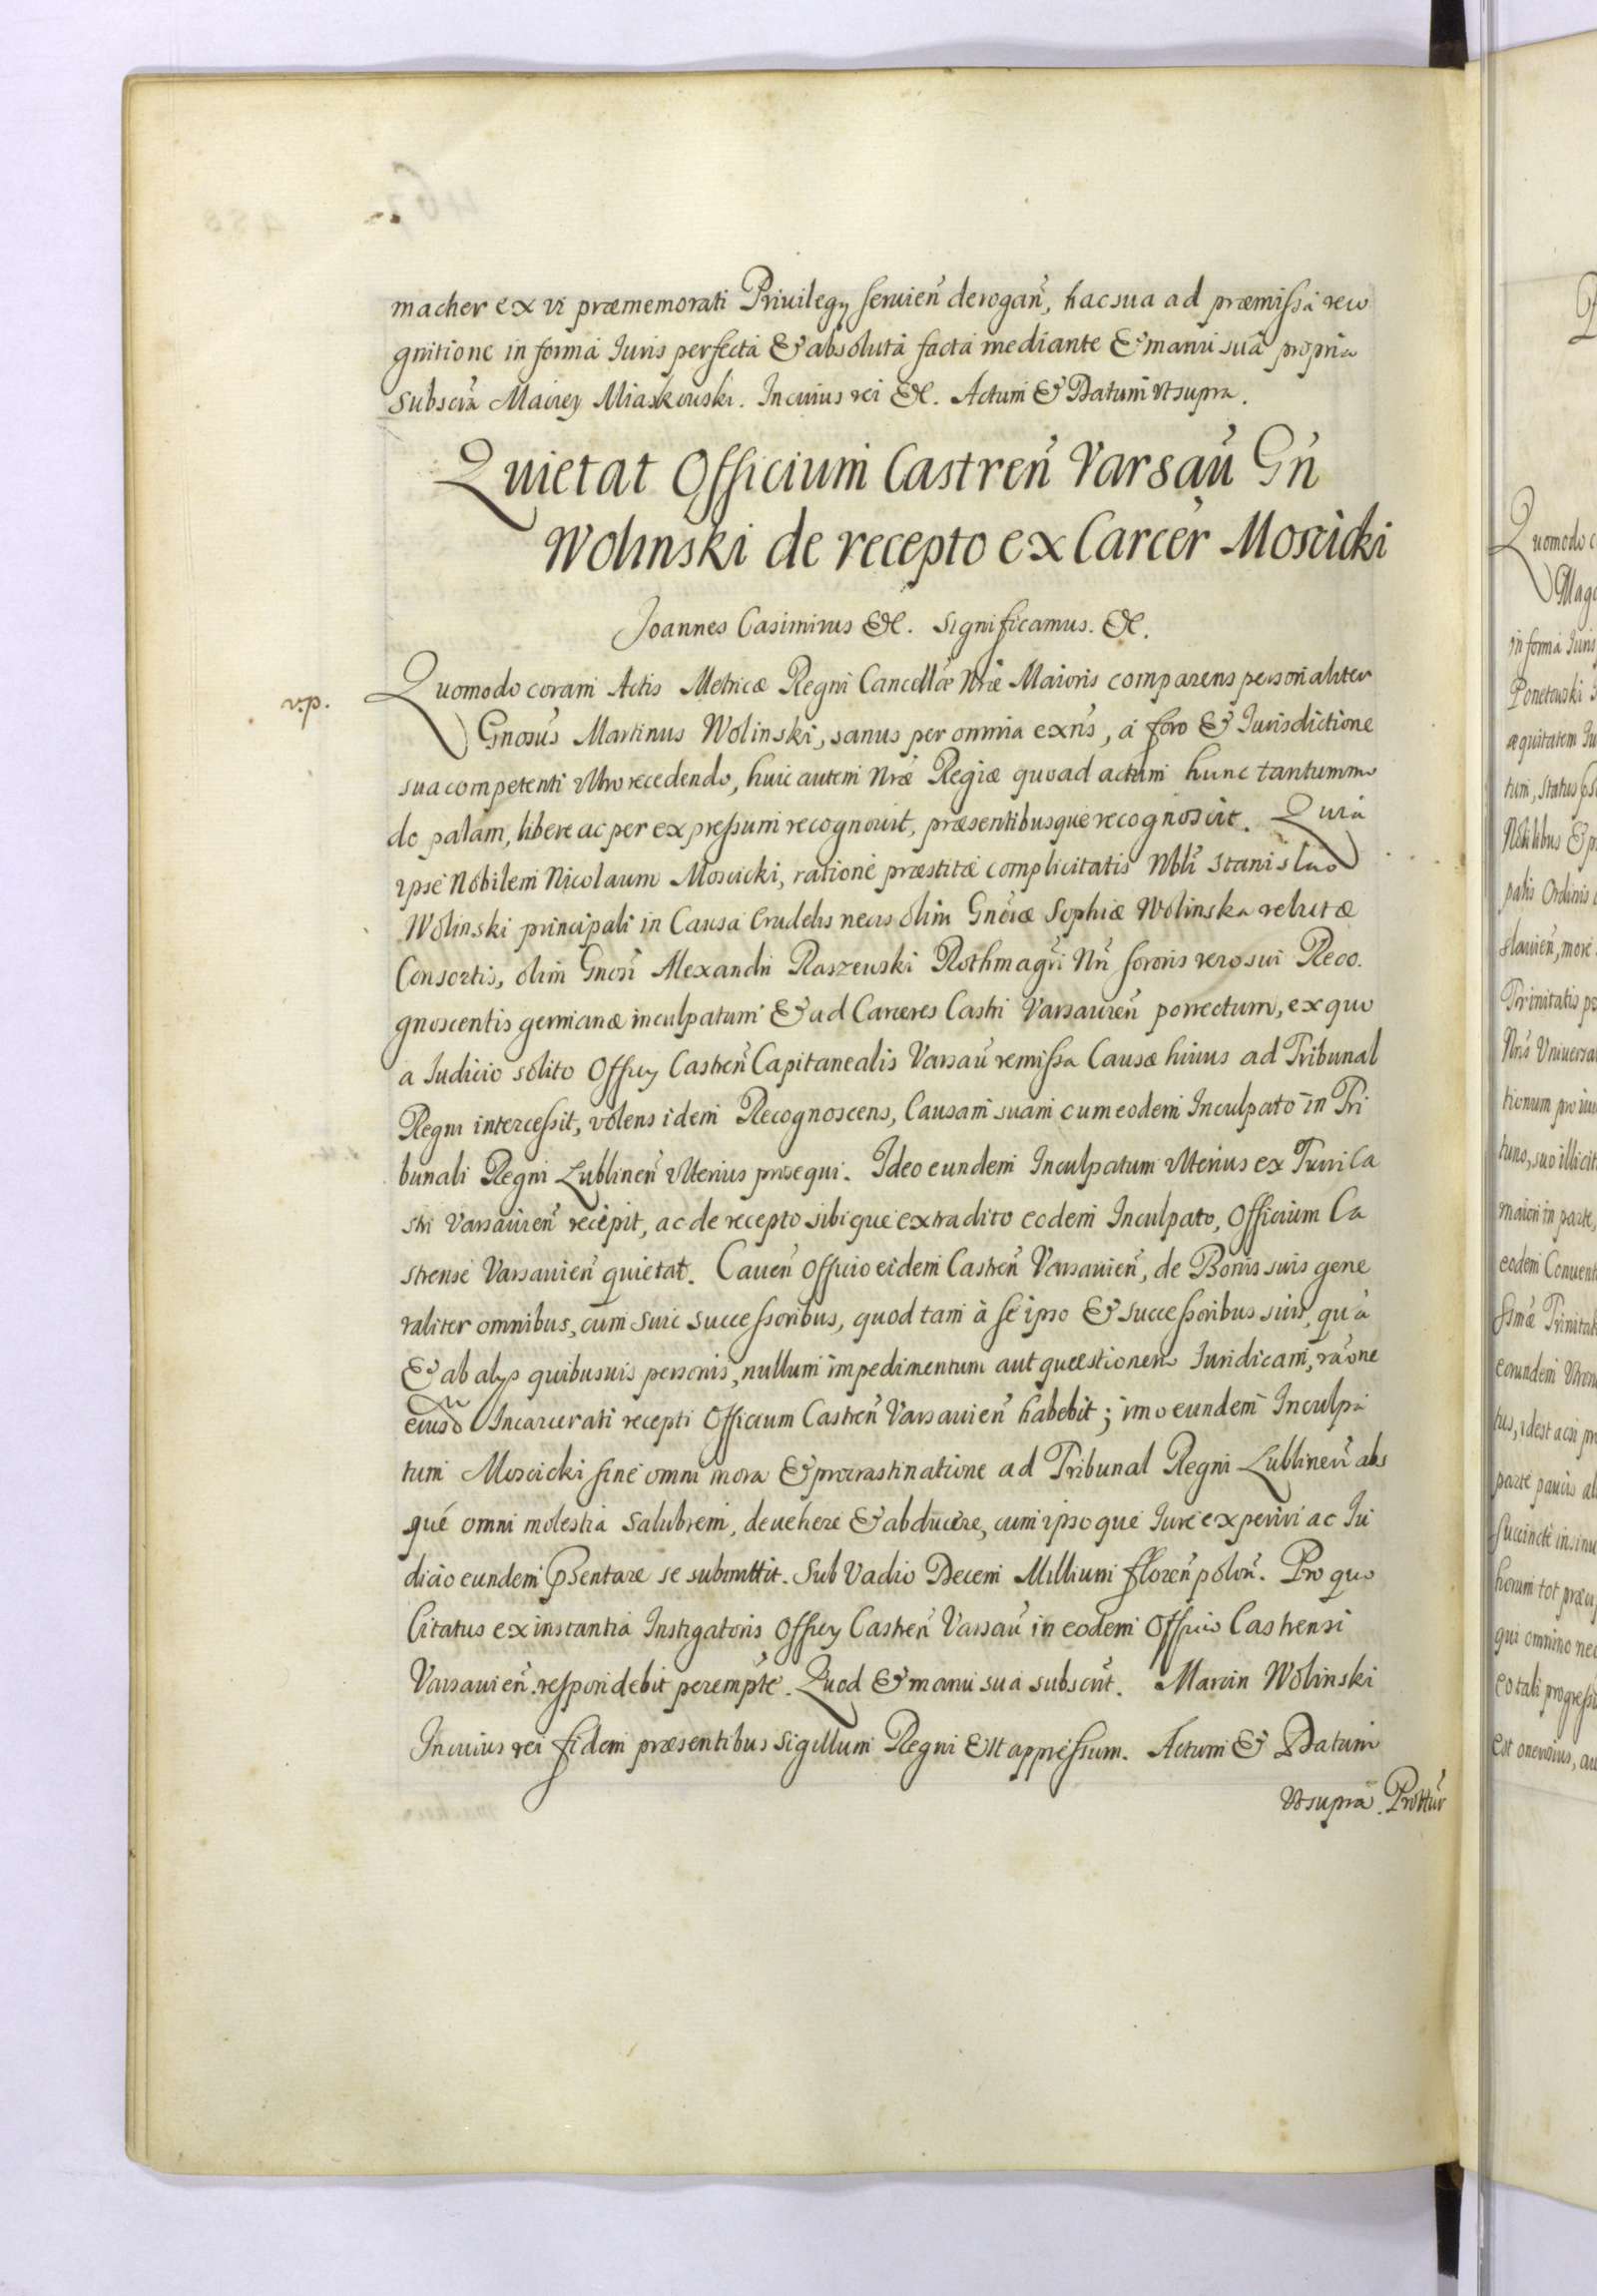 macher ex vi præmemorati Privilegy servień derogań, hac sua ad præmissa reco
gnitione in formâ Iuris perfectâ & absolutâ factâ mediante & manu suâ propria
Subscrā Mairey Miaskowski. In cuius rei &c. Actum & Datum Vt supra.
Quietat Officium Castreń Varsaú Gń
Wolinski de recepto ex Carcer Moscicki
Joannes Casimirus &c. Significamus. &c.
v.p.
Quomodo coram Actis Metricæ Regni Cancellæ Nræ Maioris comparens personaliter
Gnosús Martinus Wolinski, sanus per omnia exńs, á foro & Iurisdictione
sua competenti Vltro recedendo, huic autem Nræ Regiæ quoad actum hunc tantummo
do palam, libere ac per expressum recognouit, præsentibusque recognoscit. Quia
ipse Nobilem Nicolaum Moscicki, ratione præstitæ complicitatis Nbli Stanislao
Wolinski principali in Causa Crudelis necis olim Gnósæ Sophiæ Wolinska relictæ
Consortis, olim Gnosi Alexandri Raszewski Rothmagri Nri sororis vero sui Reco.
gnoscentis germanæ inculpatum & ad Carceres Castri Varsauień porrectum, ex quo
a Iudicio solito Officy Castreń Capitanealis Varsaú remissa Causæ huius ad Tribunal
Regni intercessit, volens idem Recognoscens, Causam suam cum eodem Inculpato in Tri
bunali Regni Lublineń Vlterius prosequi. Ideo eundem Inculpatum vlterius ex Turri Ca
stri Varsauień recepit, ac de recepto sibique extradito eodem Inculpato, Officium Ca
strense Varsauień quietat. Caueń Officio eidem Castreń Varsauień, de Bonis suis gene
raliter omnibus, cum suis successoribus, quod tam à se ipso & successoribus suis, quā
& ab alys quibusuis personis, nullum impedimentum aut quæstionem Iuridicam, raone
eiusd Incarcerati recepti Officium Castreń Varsauień habebit; imo eundem Inculpa
tum Moscicki sine omni mora & procrastinatione ad Tribunal Regni Lublineń abs
que omni molestia Salubrem, deuehere & abducere, cum ipsoque Iure experiri ac Iu
dicio eundem psentare se submittit. Sub Vadio Decem Millium floreń poloń. Pro quo
Citatus ex instantia Instigatoris Officy Castreń Varsaú in eodem Officio Castrensi
Varsauień. respondebit perempte. Quod & manu sua subscrit. Marcin Wolinski
In cuius rei fidem præsentibus Sigillum Regni Est appressum. Actum & Datum
Vt supra. Prottur